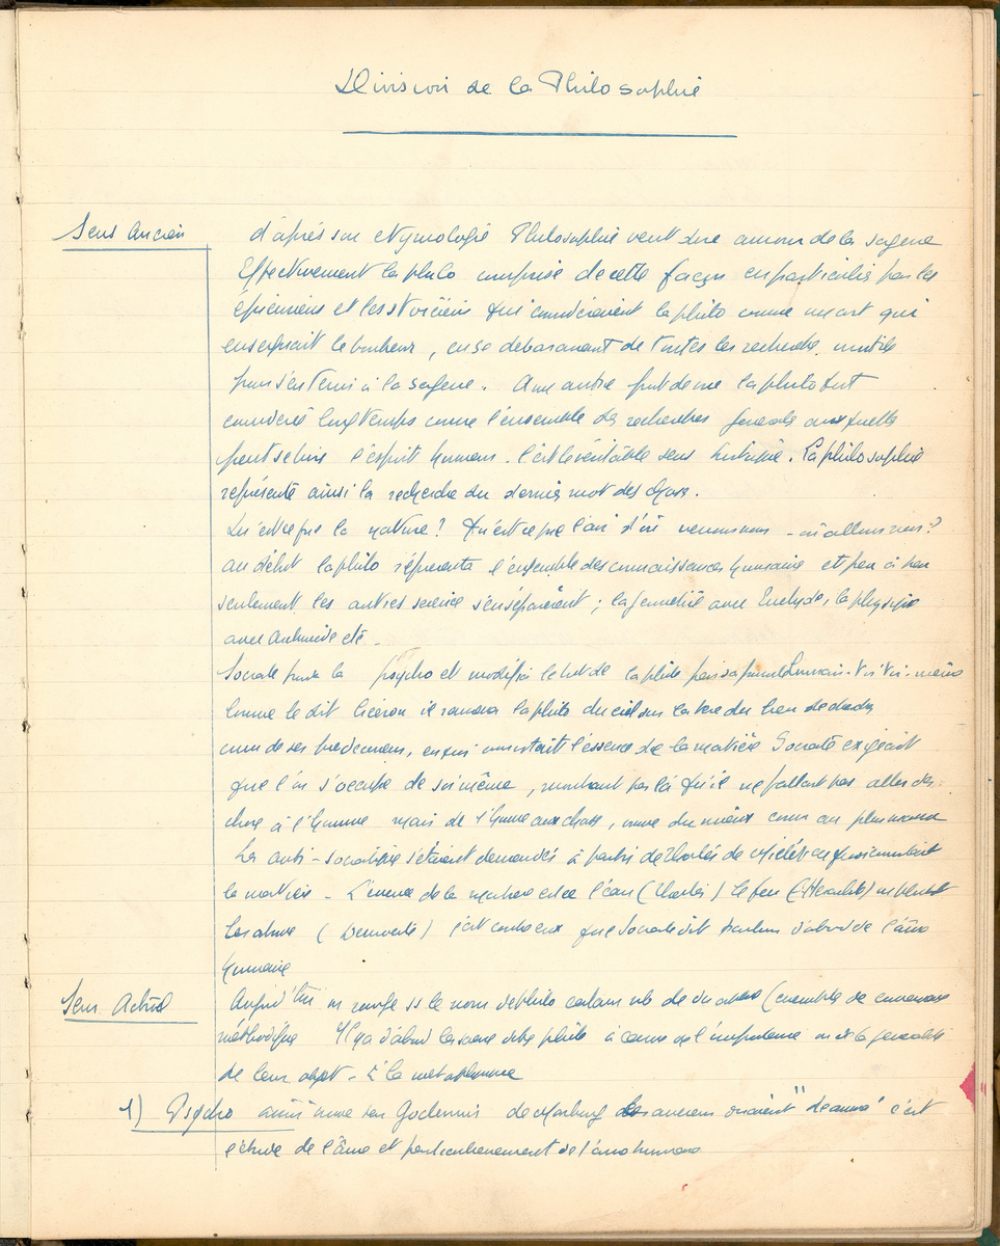 Division de la Philosophie
Sens Ancien
d'après son etymologie Philosophie veut dire amour de la sagesse
Effectivement la philo comprise de cette façon en particulier par les
épicuriens et les stoïciens qui considéraient la philo comme un art qui
enseignait le bonheur, en se debarassant de toutes les recherche inutile
pour s'en tenir à la sagesse. D'un autre point de vue la philo fut
considéré longtemps comme l'ensemble des recherches generale auxquelles
peut se livrer l'esprit humain. C'est le véritable sens historique. La philosophie
représente ainsi la recherche du dernier mot des choses.
Qu'est ce que la nature? Qu'est ce que l'âme d'où venons nous - où allons nous?
au début la philo représenta l'ensemble des connaissances humaine et peu à peu
seulement les autres science s'en séparèrent; la geometrie avec Euclyde, la physique
avec Archimède etc.
Socrate la psycho et modifia le but de la philo par sa Connais-toi toi-même
Comme le dit Ciceron il ramena la philo du ciel sur la terre au lieu de
comme ses predecesseurs, en quoi consistait l'essence de la matière Socrate exigeait
que l'on s'occupe de soi même, montrant par là qu'il ne fallait pas aller des
chose à l'homme mais de l'homme aux choses, comme du mieux connu au plus
Les anti-socratique s'étaient demandés à partir de Thalès de Milet en quoi consistait
la matière - L'essence de la matière est ce l'eau (Thalès) le feu (Héraclite)
les atome (Democrite) c'est contre eux que Socrate dit d'abord de l'âme
humaine
Sens Actuel
Aujourd'hui on range ss le nom de philo certain nb de (ensemble de
méthodique Il y a d'abord les science dites philo à cause de l'importance ou de la généralité
de leur objet - 2° la metaphysique
1) Psycho ainsi nomé par Goclenius de Marburg Les anciens disaient "De anima" c'est
l'étude de l'âme et particulierement de l'âme humaine